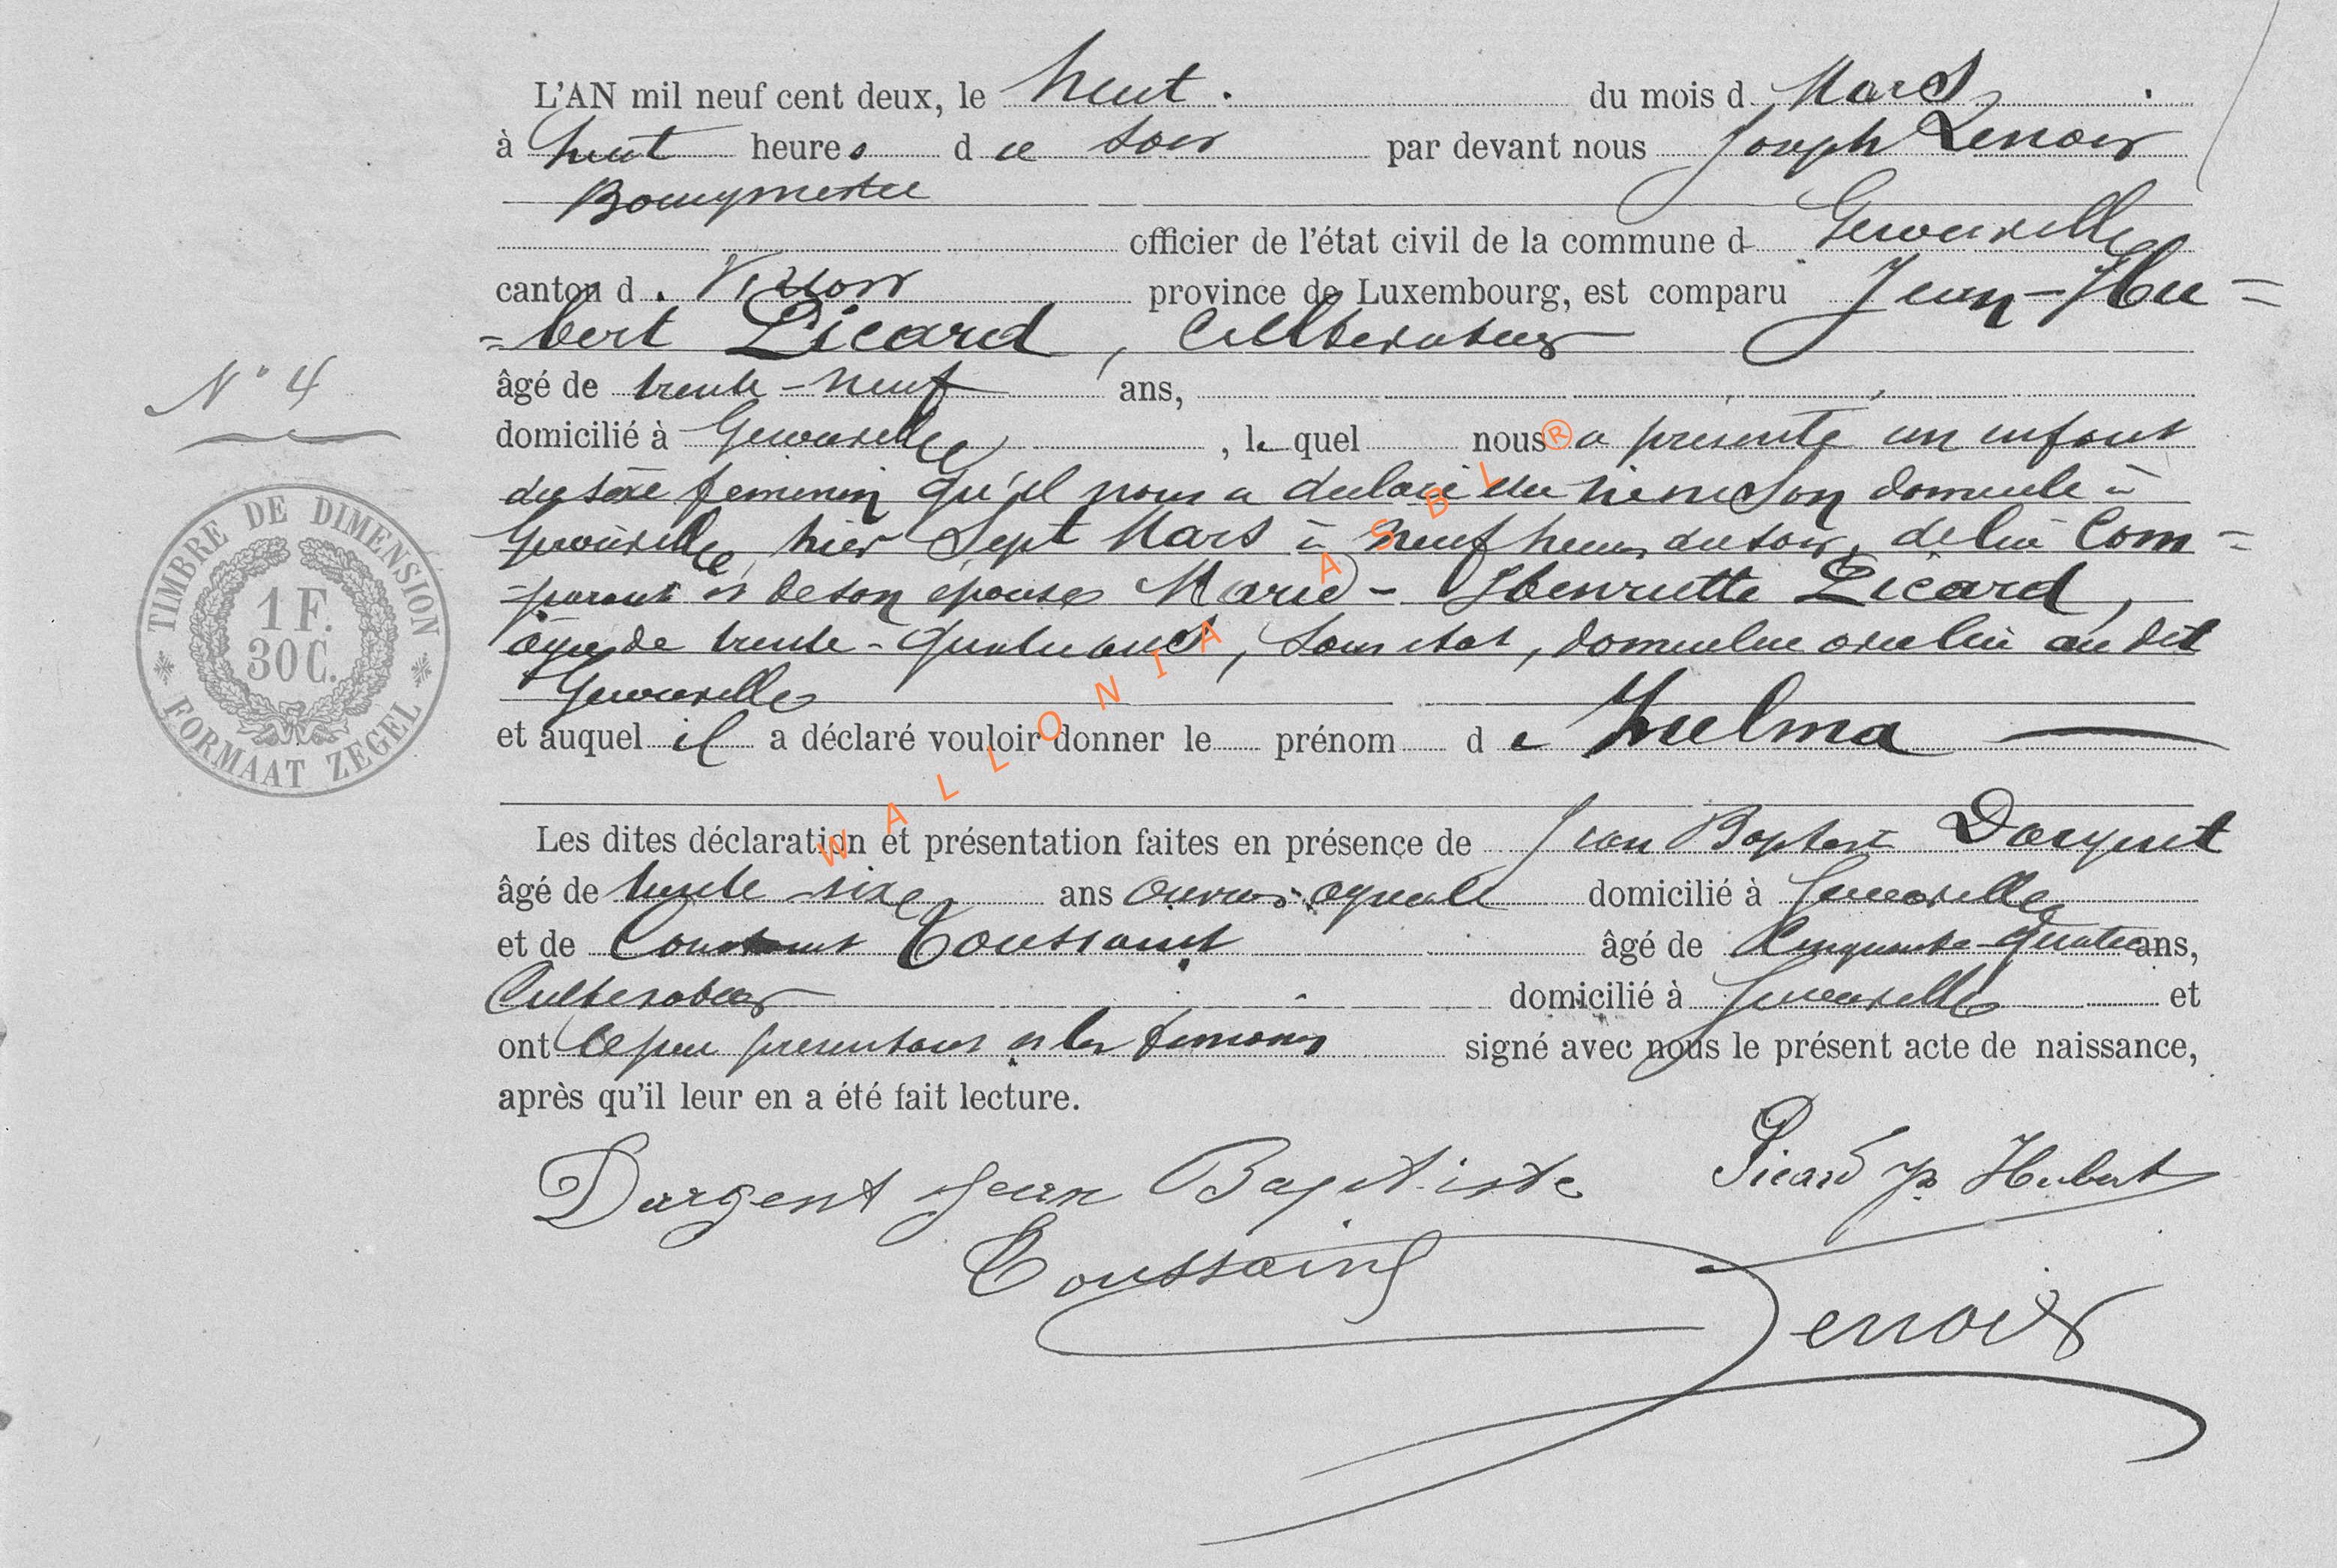 L'AN mil neuf cent deux, le huit. du mois d Mars
à huit heures d u soir par devant nous Joseph Lenoir
Bourgmestre
officier de l'état civil de la commune d Gérouville
canton d. Virton province de Luxembourg, est comparu Jean-Hu=
=bert Picard, Cultivateur
âgé de trente-neuf ans,
domicilié à Gérouville, le quel nous a présenté un enfant
N° 4
du sexe féminin qu'il nous a déclaré être né en son domicile à
Gérouville, hier Sept Mars à neuf heures du soir, de lui Com=
=parant et de son épouse Marie-Henriette Picard,
âgée de trente-quatre ans, sans état, domiciliée avec lui au dit
Gérouville
et auquel il a déclaré vouloir donner le prénom d e Zulma
TIMBRE DE DIMENSION
1 F.
30 C.
FORMAAT ZEGEL
Les dites déclaration et présentation faites en présence de Jean Baptiste Dargent
âgé de trente-six ans ouvrier agricole domicilié à Gérouville
et de Constant Toussaint âgé de Cinquante-quatre ans,
Cultivateur domicilié à Gérouville et
ont le père présentant et les témoins signé avec nous le présent acte de naissance,
après qu'il leur en a été fait lecture.
Dargent Jean Baptiste Picard Jn Hubert
Toussaint
Lenoir
WALLONIA ASBL ®